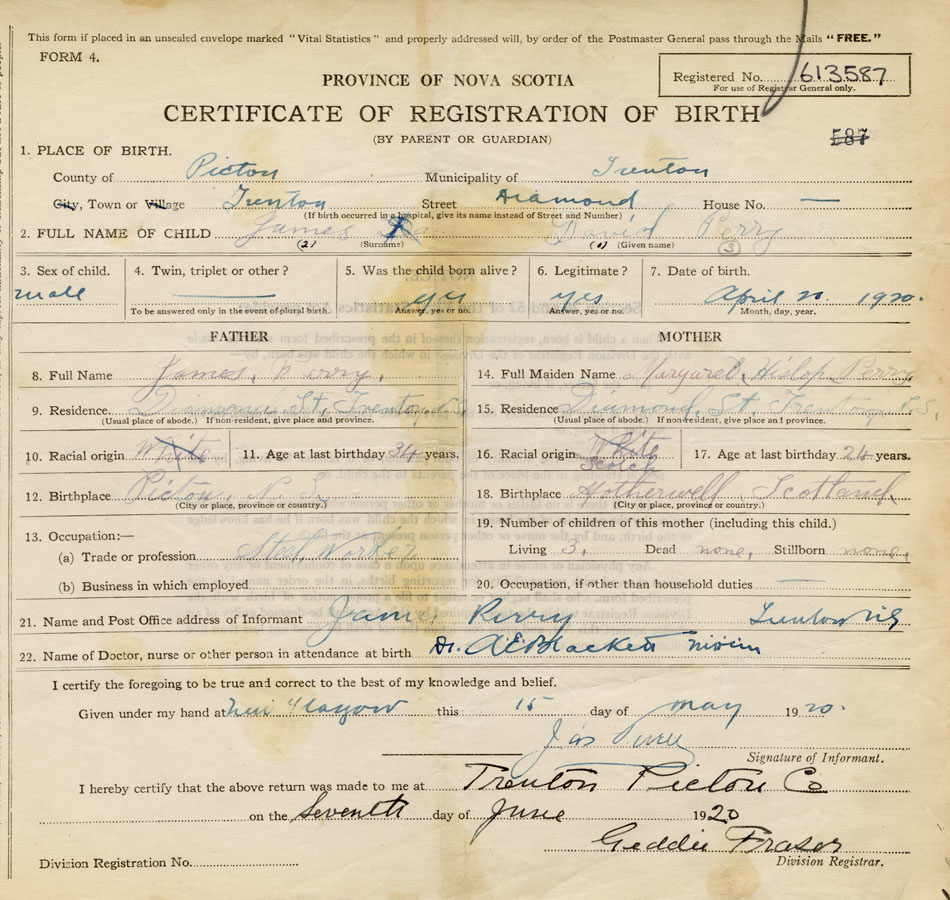 This form if placed in an unsealed envelope marked "Vital Statistics" and properly addressed will, by order of the Postmaster General pass through the Mails "FREE."
FORM 4.
Registered No. 613587
For use of Registrar General only.
PROVINCE OF NOVA SCOTIA
CERTIFICATE OF REGISTRATION OF BIRTH
(BY PARENT OR GUARDIAN)
587
1. PLACE OF BIRTH.
County of Picton Municipality of Trenton
City, Town or Village Trenton Street Diamond House No. —
(If birth occurred in a hospital, give its name instead of Street and Number)
2. FULL NAME OF CHILD James David Perry
(2) (Surname) (1) (Given name) (3)
3. Sex of child. 4. Twin, triplet or other? 5. Was the child born alive? 6. Legitimate? 7. Date of birth.
male — yes yes April 20. 1920.
To be answered only in the event of plural birth. Answer, yes or no. Answer, yes or no. Month, day, year.
FATHER MOTHER
8. Full Name James Perry. 14. Full Maiden Name Margaret Hislop Perry
9. Residence. Diamond St, Trenton, N.S. 15. Residence Diamond St Trenton, N.S.
(Usual place of abode.) If non-resident, give place and province. (Usual place of abode.) If non-resident, give place and province.
10. Racial origin White 11. Age at last birthday 34 years. 16. Racial origin White Scotch 17. Age at last birthday 24 years.
12. Birthplace Picton, N.S. 18. Birthplace Motherwell, Scotland,
(City or place, province or country.) (City or place, province or country.)
13. Occupation:— 19. Number of children of this mother (including this child.)
(a) Trade or profession Steel Worker Living 3, Dead none, Stillborn none,
(b) Business in which employed 20. Occupation, if other than household duties —
21. Name and Post Office address of Informant James Perry Trenton NS
22. Name of Doctor, nurse or other person in attendance at birth Dr.
I certify the foregoing to be true and correct to the best of my knowledge and belief.
Given under my hand at New Glasgow this 15 day of May 1920.
Jas Perry
Signature of Informant.
I hereby certify that the above return was made to me at Trenton Picton Co
on the Seventh day of June 1920
Geddie Fraser
Division Registration No. Division Registrar.